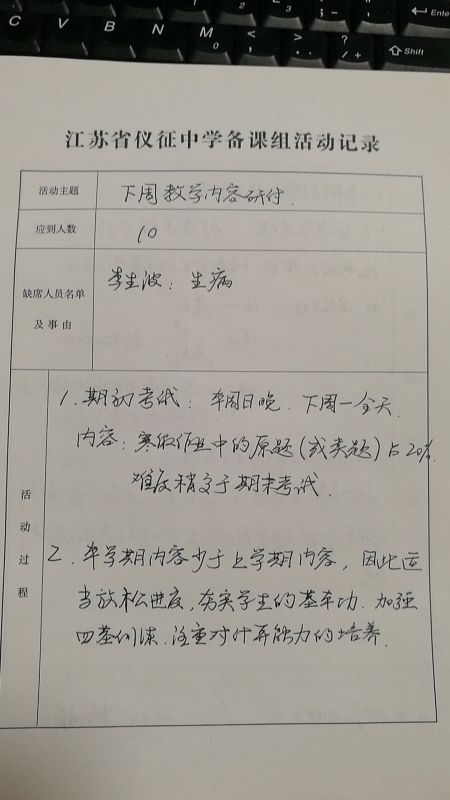 C V B N M < > ? Enter
0 , . / Shift
江苏省仪征中学备课组活动记录
活动主题 下周教学内容研付.
应到人数 10
缺席人员名单及事由 李生波：生病
活动过程
1. 期初考试：本周日晚. 下周一全天.
内容：寒假作业中的原题(或类题)占20%.
难度稍交于期末考试.
2. 本学期内容少于上学期内容，因此适
当放松进度，夯实学生的基本功. 加强
四基训练. 注重对计算能力的培养.